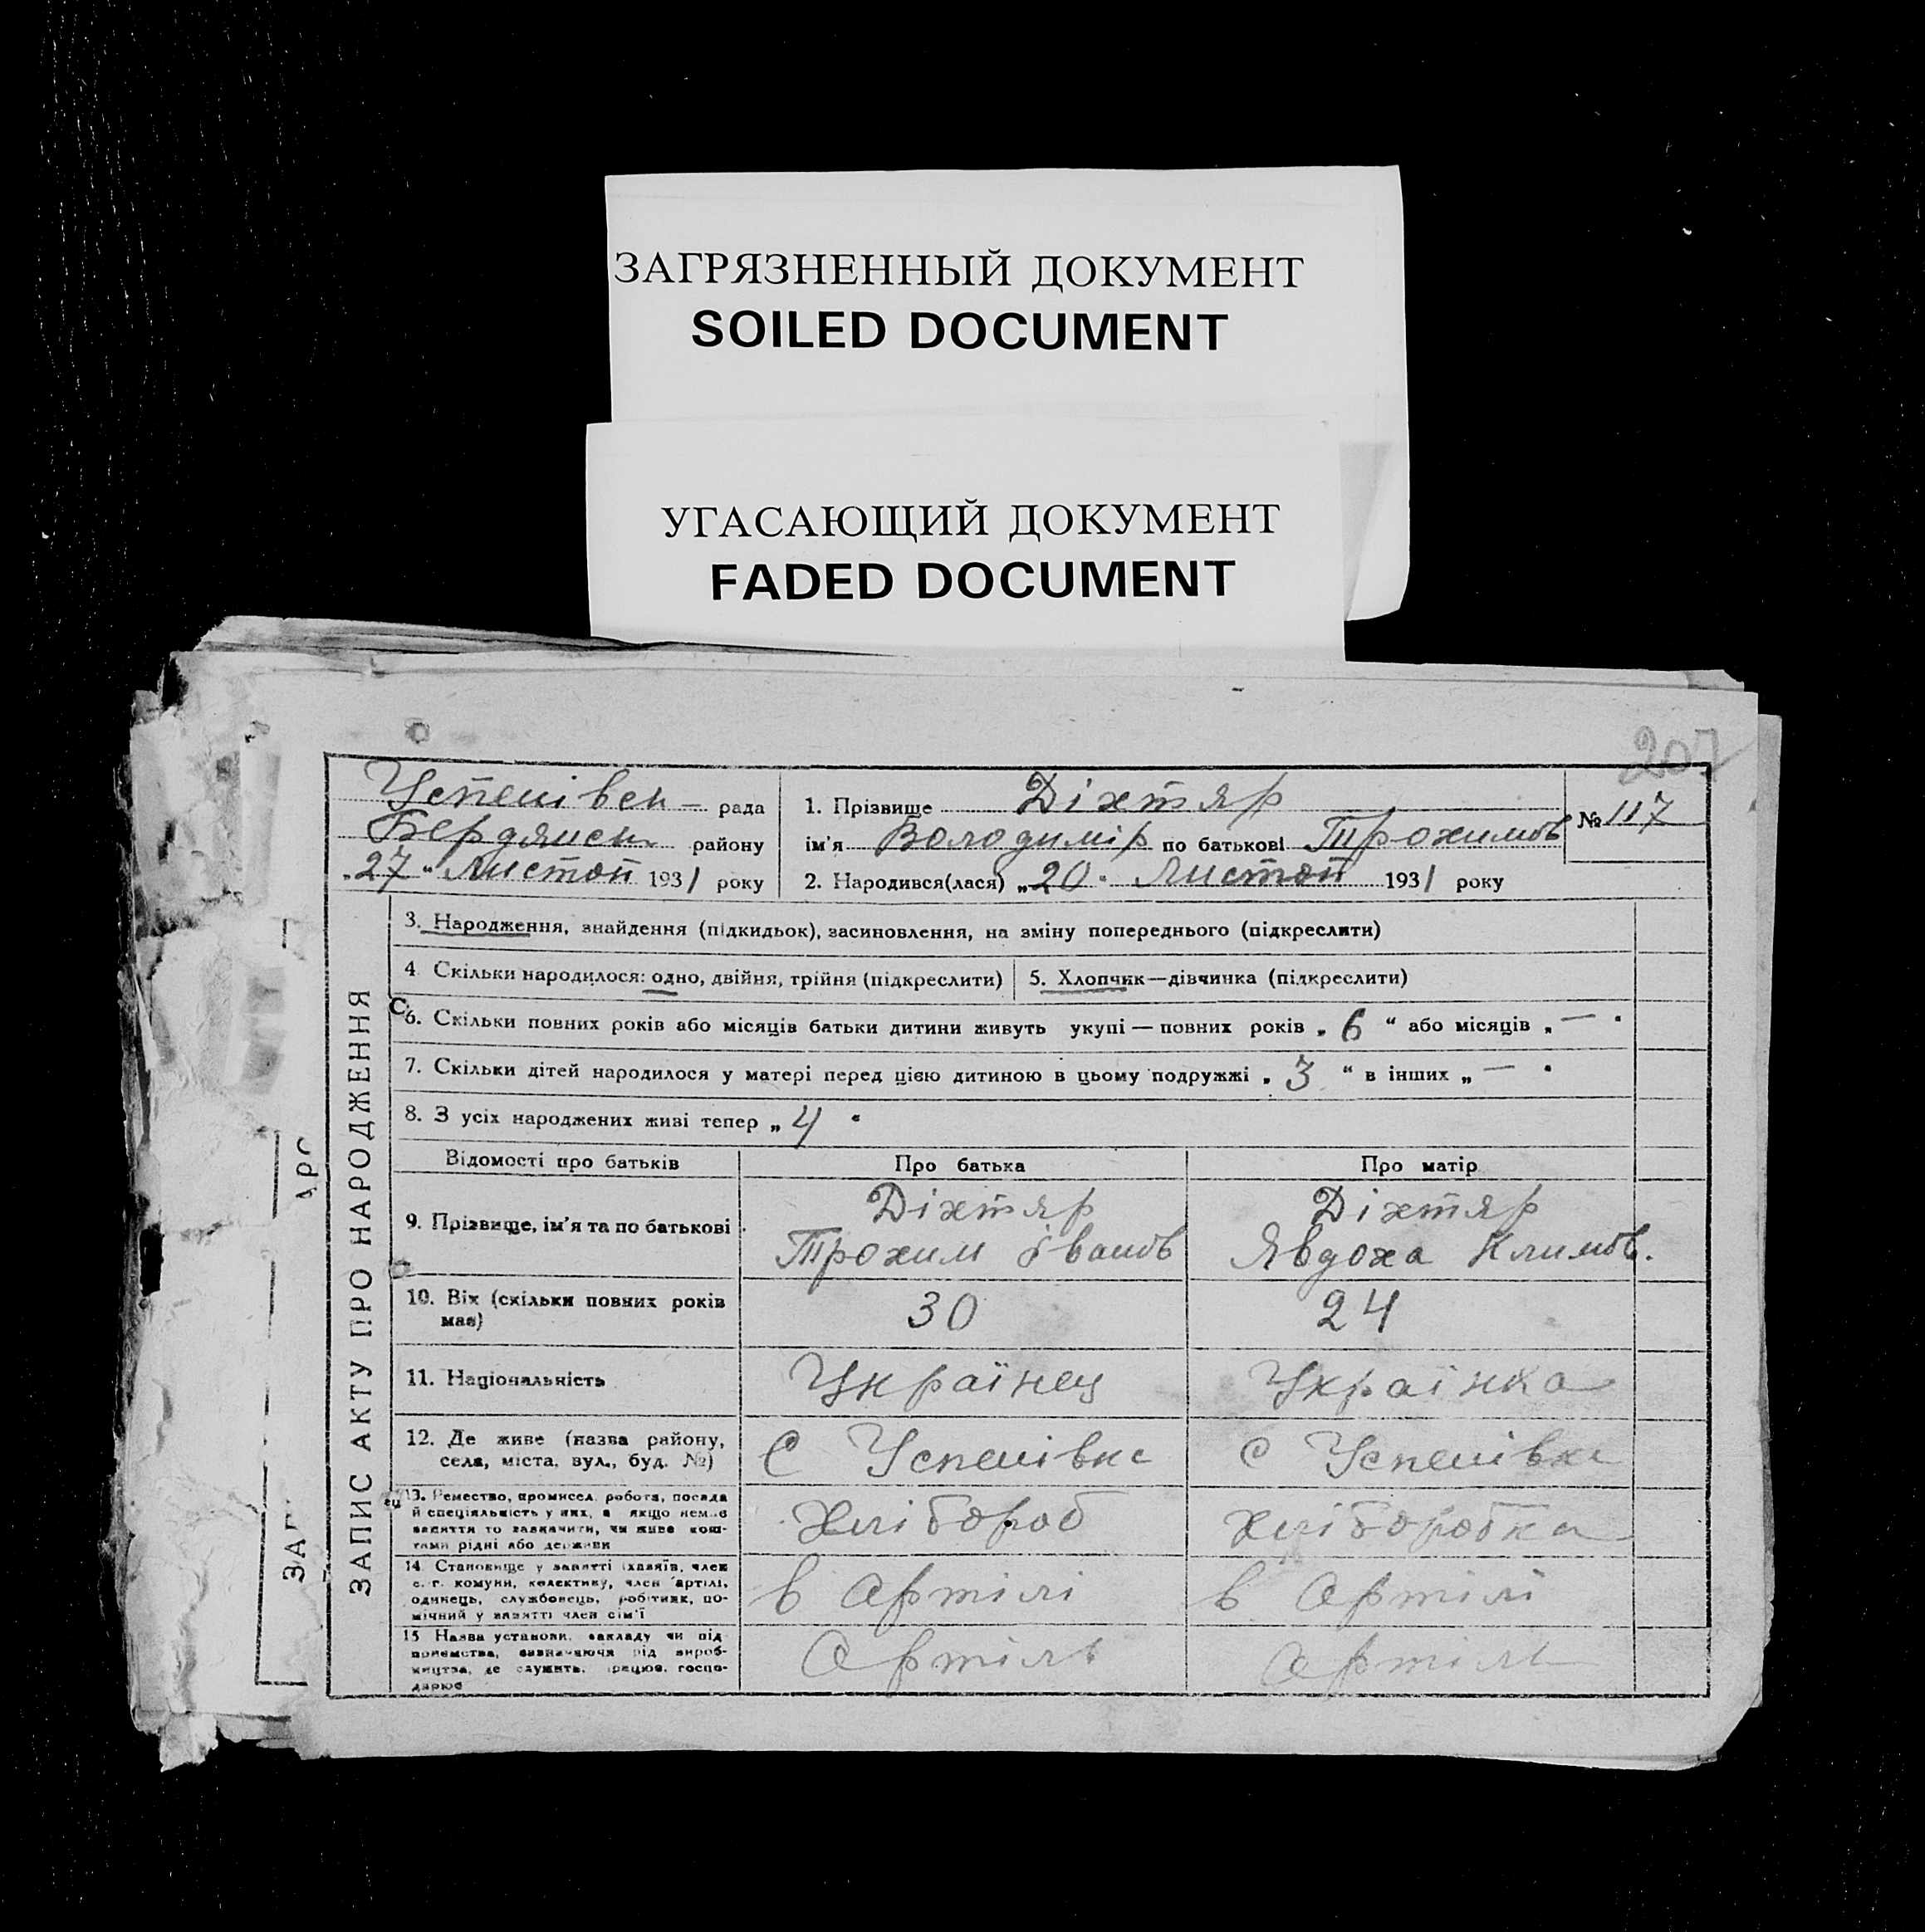 ЗАГРЯЗНЕННЫЙ ДОКУМЕНТ
SOILED DOCUMENT
УГАСАЮЩИЙ ДОКУМЕНТ
FADED DOCUMENT
207
Успенівск – рада
Бердянськ району
„27“ Листоп 1931 року
1. Прізвище Діхтяр
ім'я Володимір по батькові Трохимов
№ 117
2. Народився(лася) „20“ Листоп 1931 року
ЗАПИС АКТУ ПРО НАРОДЖЕННЯ
3. Народження, знайдення (підкидьок), засиновлення, на зміну попереднього (підкреслити)
4. Скільки народилося: одно, двійня, трійня (підкреслити)
5. Хлопчик—дівчинка (підкреслити)
6. Скільки повних років або місяців батьки дитини живуть укупі — повних років „6“ або місяців „—“
7. Скільки дітей народилося у матері перед цією дитиною в цьому подружжі „3“ в інших „—“
8. З усіх народжених живі тепер „4“
Відомості про батьків
Про батька
Про матір
9. Прізвище, ім'я та по батькові
Діхтяр
Трохим Іванов
Діхтяр
Явдоха Климов.
10. Вік (скільки повних років
має)
30
24
11. Національність
Українец
Українка
12. Де живе (назва району,
села, міста, вул., буд. №)
С Успенівка
с Успенівка
13. Ремество, промисел, робота, посада
й спеціяльність у них, а якщо немає
заняття то зазначити, чи живе кош-
тами рідні або держави
Хлібороб
Хліборобка
14. Становище у занятті (хазяїв, член
с. г. комуни, колективу, член артілі,
одинець, службовець, робітник, по-
мічний у занятті член сім'ї
в Артілі
в Артілі
15 Назва установи, закладу чи під
приємства, визначаючи рід вироб-
ництва, де служить, працює, госпо-
дарює
Артіль
Артіль